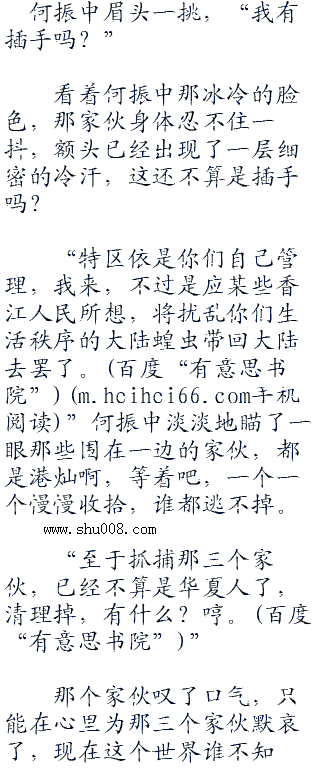 何振中眉头一挑，“我有
插手吗？”
看着何振中那冰冷的脸
色，那家伙身体忍不住一
抖，额头已经出现了一层细
密的冷汗，这还不算是插手
吗？
“特区依是你们自己管
理，我来，不过是应某些香
江人民所想，将扰乱你们生
活秩序的大陆蝗虫带回大陆
去罢了。(百度“有意思书
院”)(m.hcihci66.com手机
阅读)”何振中淡淡地瞄了一
眼那些围在一边的家伙，都
是港灿啊，等着吧，一个一
个慢慢收拾，谁都逃不掉。
www.shu008.com
“至于抓捕那三个家
伙，已经不算是华夏人了，
清理掉，有什么？哼。(百度
“有意思书院”)”
那个家伙叹了口气，只
能在心里为那三个家伙默哀
了，现在这个世界谁不知